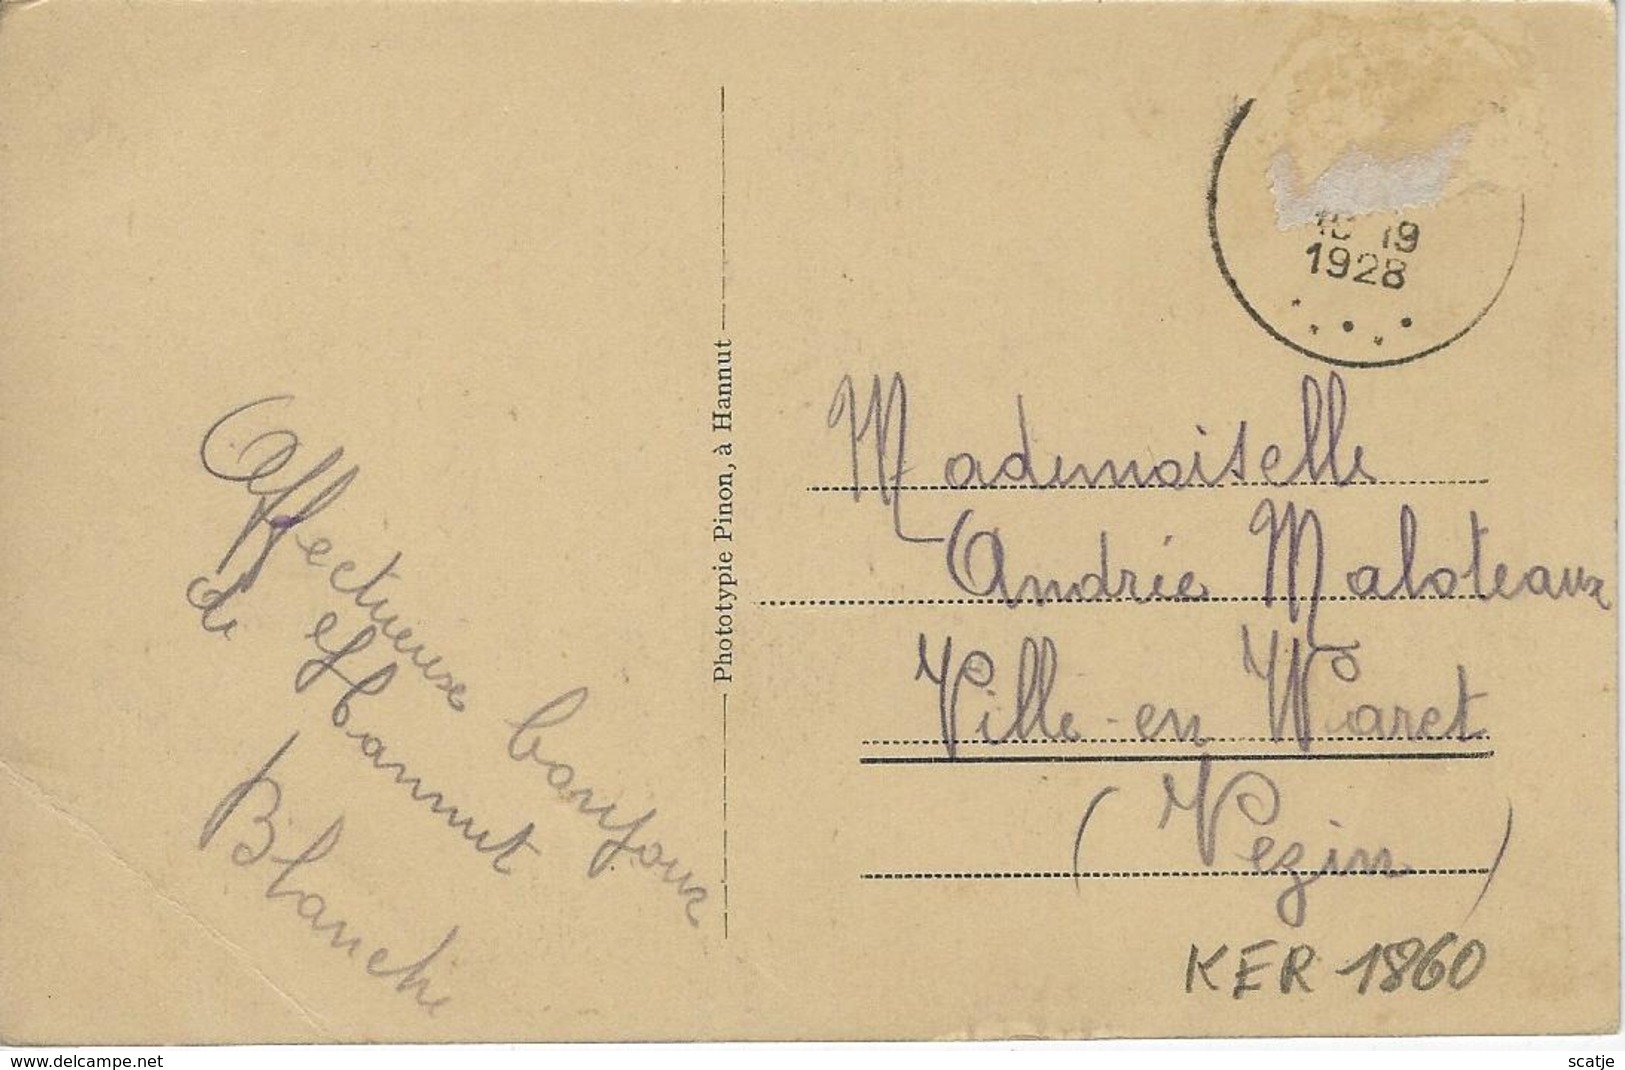 Affectueux bonjour
de Hannut
Blanche
Phototypie Pinon, à Hannut
19
1928
Mademoiselle
Andrée Maloteaux
Ville-en Waret
(Vezin)
KER 1860
delcampe.net
scatje